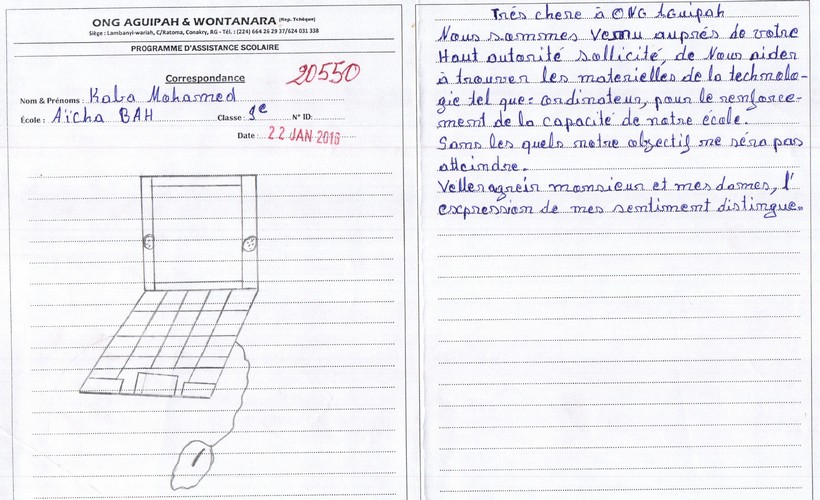 ONG AGUIPAH & WONTANARA (Rep. Tchèque)
Siège : Lambanyi-wariah, C/Ratoma, Conakry, RG - Tél. : (224) 664 26 29 37/624 031 338
PROGRAMME D'ASSISTANCE SCOLAIRE
20550
Correspondance
Nom & Prénoms : Kaba Mohamed
École : Aïcha BAH Classe : 9e N° ID:
Date : 22 JAN 2016
Trés chere à ONG AGuipah
Nous sommes Vemu auprés de votre
Haut autorité sollicité, de Nous aider
à trouver les materielles de la technolo-
gie tel que: ordinateur, pour le renforce-
ment de la capacité de notre école.
Sans les quels notre objectif ne séra pas
atteindre.
Velleragréir monsieur et mes dames, l'
expression de mes sentiment distingue.